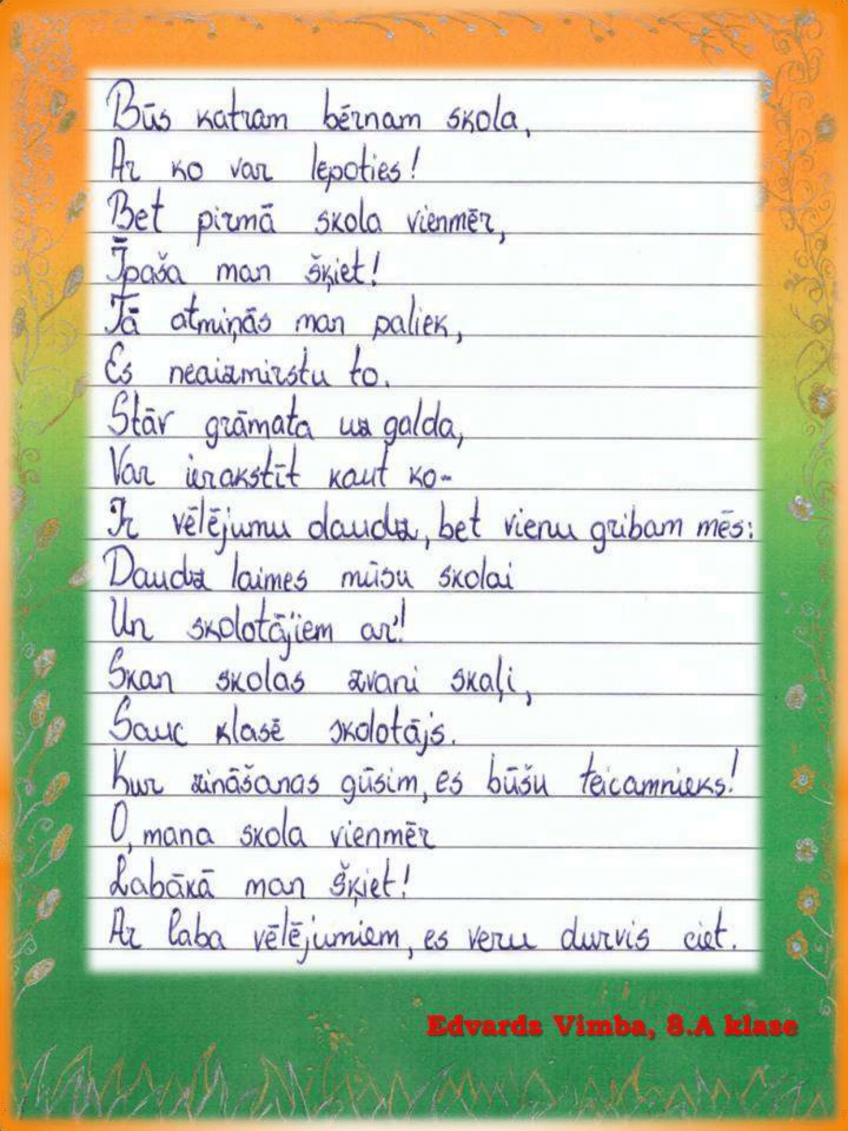 Būs katram bērnam skola,
Ar ko var lepoties!
Bet pirmā skola vienmēr,
Īpaša man šķiet!
Tā atmiņās man paliek,
Es neaizmirstu to.
Stāv grāmata uz galda,
Var ierakstīt kaut ko-
Ir vēlējumu daudz, bet vienu gribam mēs:
Daudz laimes mūsu skolai
Un skolotājiem ar'!
Skan skolas zvani skaļi,
Sauc klasē skolotājs.
Kur zināšanas gūsim, es būšu teicamnieks!
O, mana skola vienmēr
Labākā man šķiet!
Ar laba vēlējumiem, es veru durvis ciet.
Edvards Vimba, 8.A klase